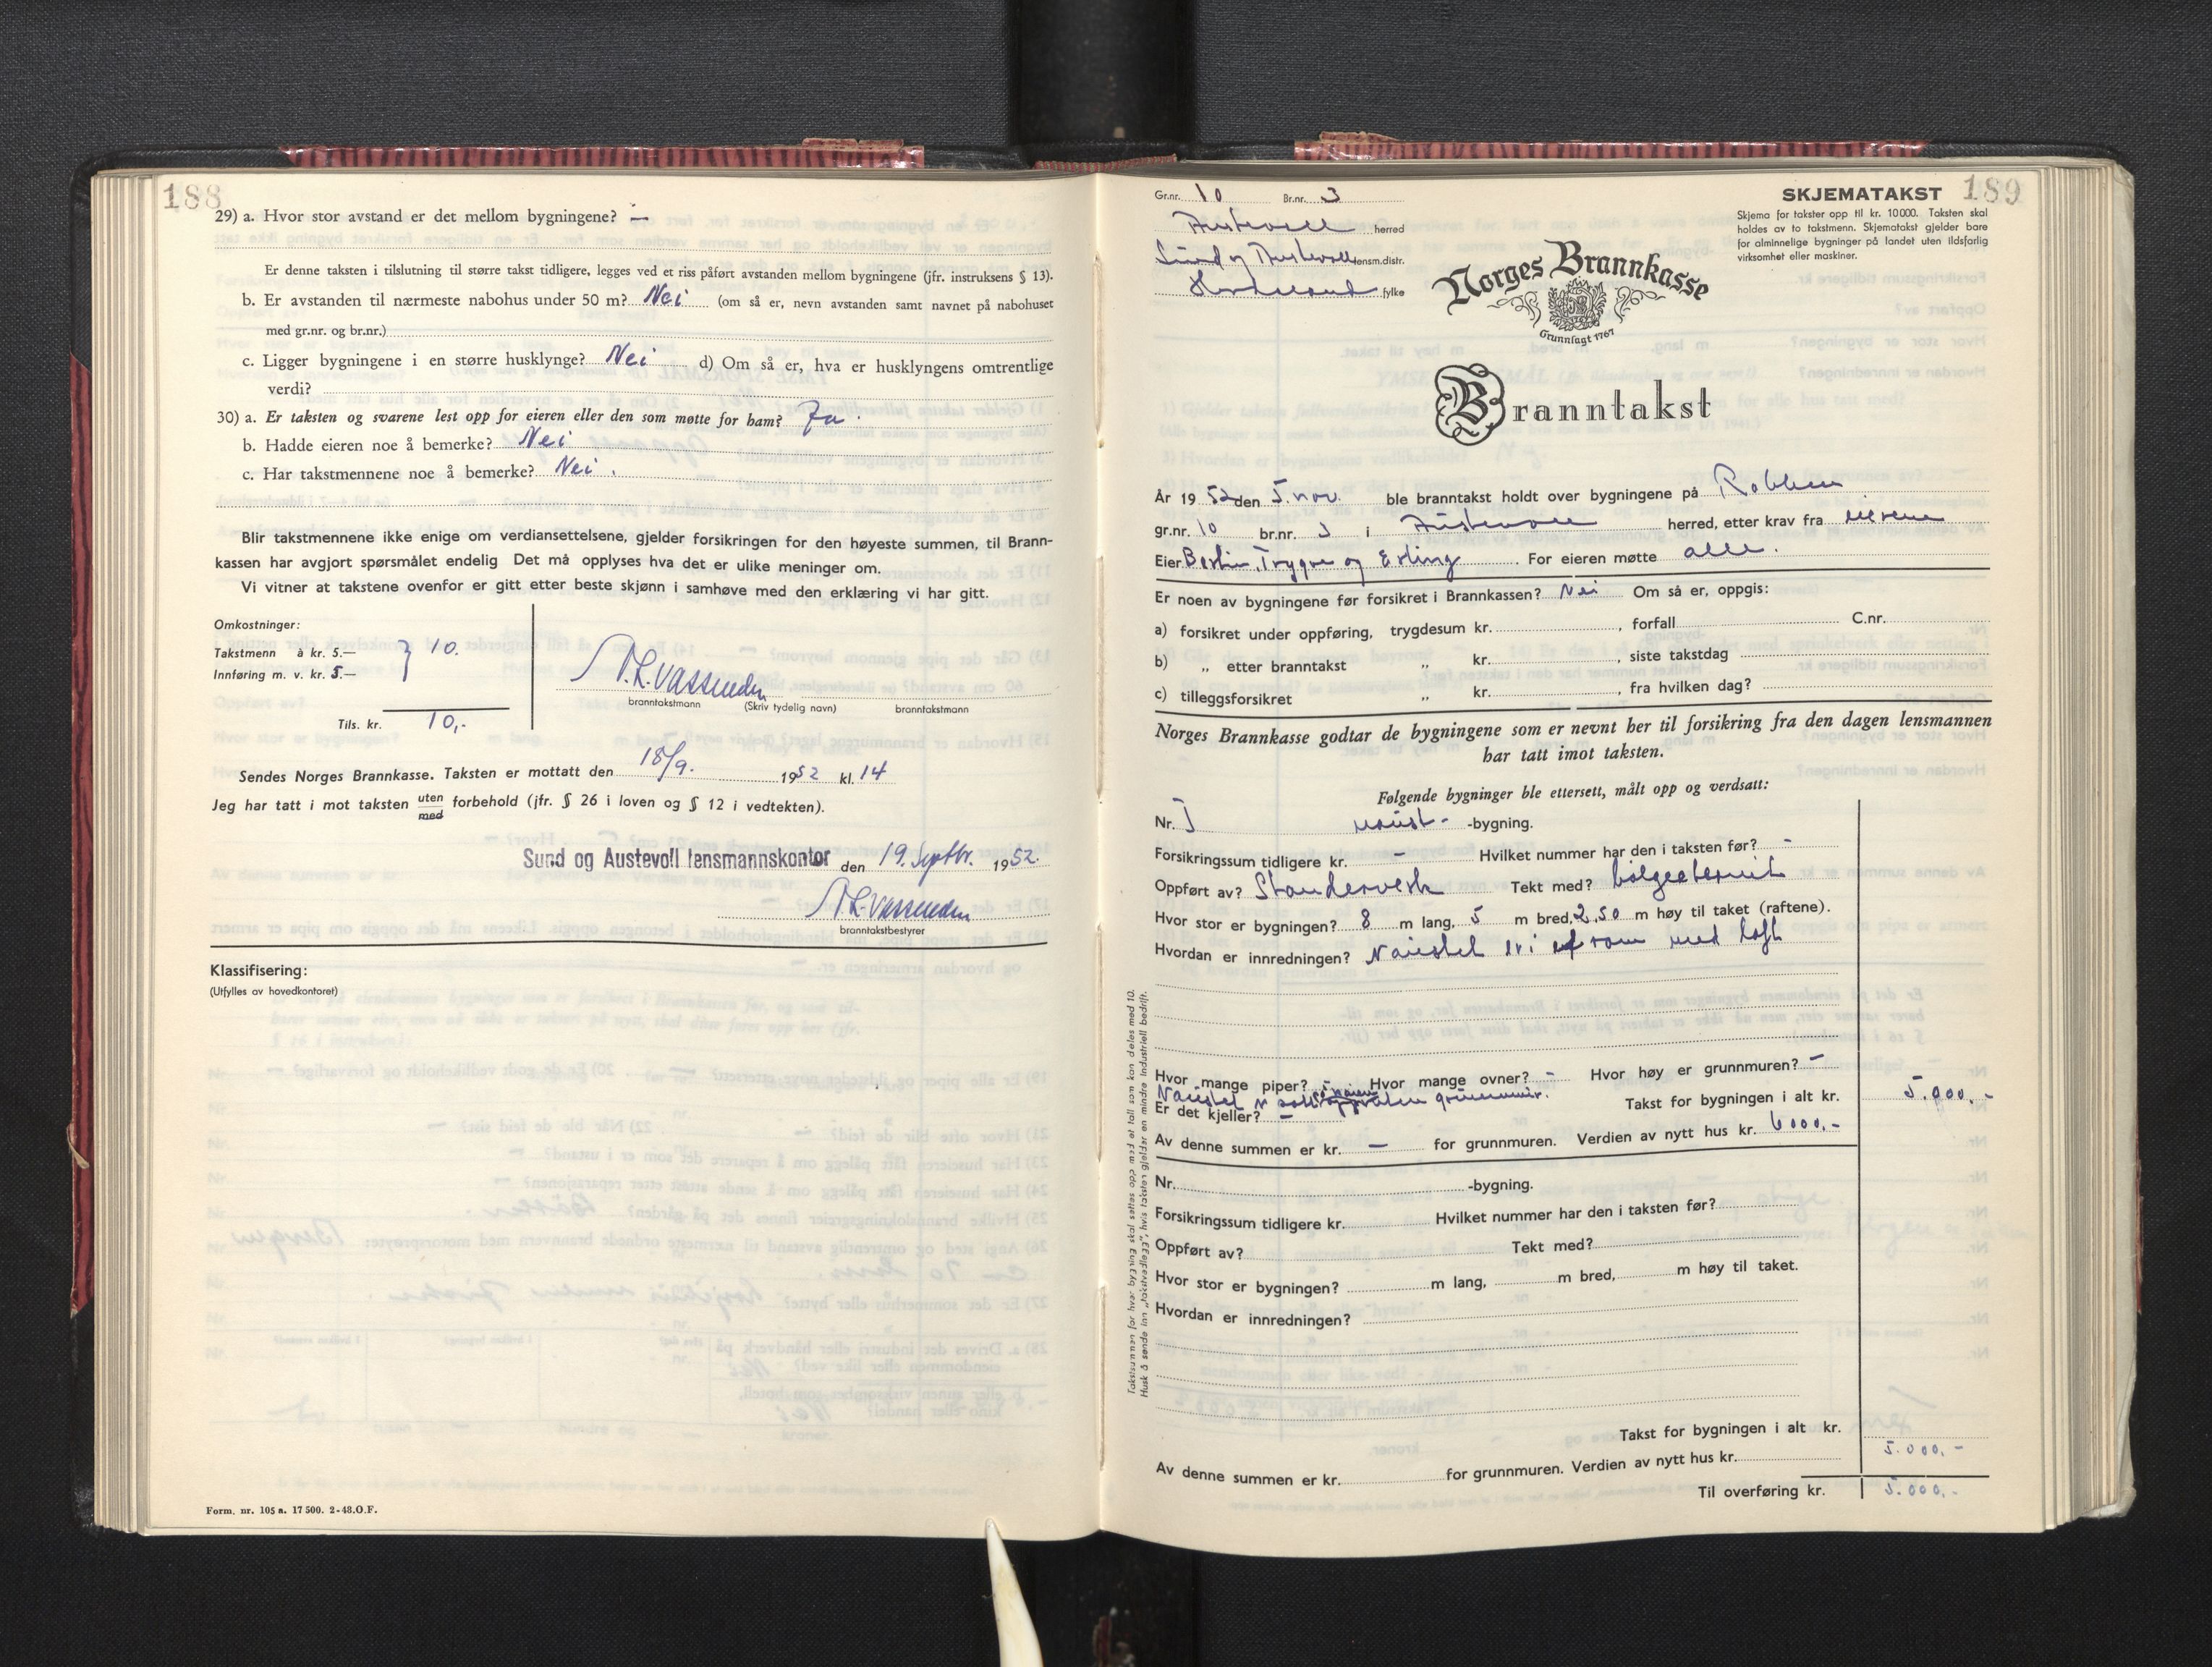 188
29) a. Hvor stor avstand er det mellom bygningene? —
Er denne taksten i tilslutning til større takst tidligere, legges ved et riss påført avstanden mellom bygningene (jfr. instruksens § 13).
b. Er avstanden til nærmeste nabohus under 50 m? Nei (om så er, nevn avstanden samt navnet på nabohuset
med gr.nr. og br.nr.)
c. Ligger bygningene i en større husklynge? Nei d) Om så er, hva er husklyngens omtrentlige
verdi?
30) a. Er taksten og svarene lest opp for eieren eller den som møtte for ham? Ja.
b. Hadde eieren noe å bemerke? Nei
c. Har takstmennene noe å bemerke? Nei.
Blir takstmennene ikke enige om verdiansettelsene, gjelder forsikringen for den høyeste summen, til Brann-
kassen har avgjort spørsmålet endelig Det må opplyses hva det er ulike meninger om.
Vi vitner at takstene ovenfor er gitt etter beste skjønn i samhøve med den erklæring vi har gitt.
Omkostninger:
Takstmenn à kr. 5.— } 10.
Innføring m. v. kr. 5.—
Tils. kr. 10,-
A.L. Vassenden
branntakstmann (Skriv tydelig navn) branntakstmann
Sendes Norges Brannkasse. Taksten er mottatt den 18/9. 1952 kl. 14
Jeg har tatt i mot taksten uten med forbehold (jfr. § 26 i loven og § 12 i vedtekten).
Sund og Austevoll lensmannskontor den 19. Septbr. 1952.
A.L. Vassenden
branntakstbestyrer
Klassifisering:
(Utfylles av hovedkontoret)
Form. nr. 105 a. 17 500. 2-48. O.F.
Gr.nr. 10 Br.nr. 3
SKJEMATAKST 189
Skjema for takster opp til kr. 10000. Taksten skal
holdes av to takstmenn. Skjematakst gjelder bare
for alminnelige bygninger på landet uten ildsfarlig
virksomhet eller maskiner.
Austevoll herred
Sund og Austevoll lensm.distr.
Hordaland fylke
Norges Brannkasse
Grunnlagt 1767
Branntakst
År 1952 den 5. nov. ble branntakst holdt over bygningene på
gr.nr. 10 br.nr. 3 i Austevoll herred, etter krav fra eierene
Eier Trygve og Erling. For eieren møtte alle.
Er noen av bygningene før forsikret i Brannkassen? Nei Om så er, oppgis:
a) forsikret under oppføring, trygdesum kr. , forfall C.nr.
b) „ etter branntakst „ kr. , siste takstdag
c) tilleggsforsikret „ kr. , fra hvilken dag?
Norges Brannkasse godtar de bygningene som er nevnt her til forsikring fra den dagen lensmannen
har tatt imot taksten.
Følgende bygninger ble ettersett, målt opp og verdsatt:
Nr. I naust- -bygning.
Forsikringssum tidligere kr. — Hvilket nummer har den i taksten før? -
Oppført av? Stenderverk Tekt med? bølgeeternit
Hvor stor er bygningen? 8 m lang, 5 m bred, 2,50 m høy til taket (raftene).
Hvordan er innredningen? Naustet er i et rom med loft
Hvor mange piper? Hvor mange ovner? - Hvor høy er grunnmuren? —
Naustet grunnmur.
Er det kjeller? — Takst for bygningen i alt kr. 5.000.-
Av denne summen er kr. — for grunnmuren. Verdien av nytt hus kr. 6000.-
Nr. -bygning.
Forsikringssum tidligere kr. Hvilket nummer har den i taksten før?
Oppført av? Tekt med?
Hvor stor er bygningen? m lang, m bred, m høy til taket.
Hvordan er innredningen?
Takst for bygningen i alt kr.
5.000.-
Av denne summen er kr. for grunnmuren. Verdien av nytt hus kr.
Til overføring kr. 5.000.-
Takstsummen for hver bygning skal settes opp med et tall som kan deles med 10.